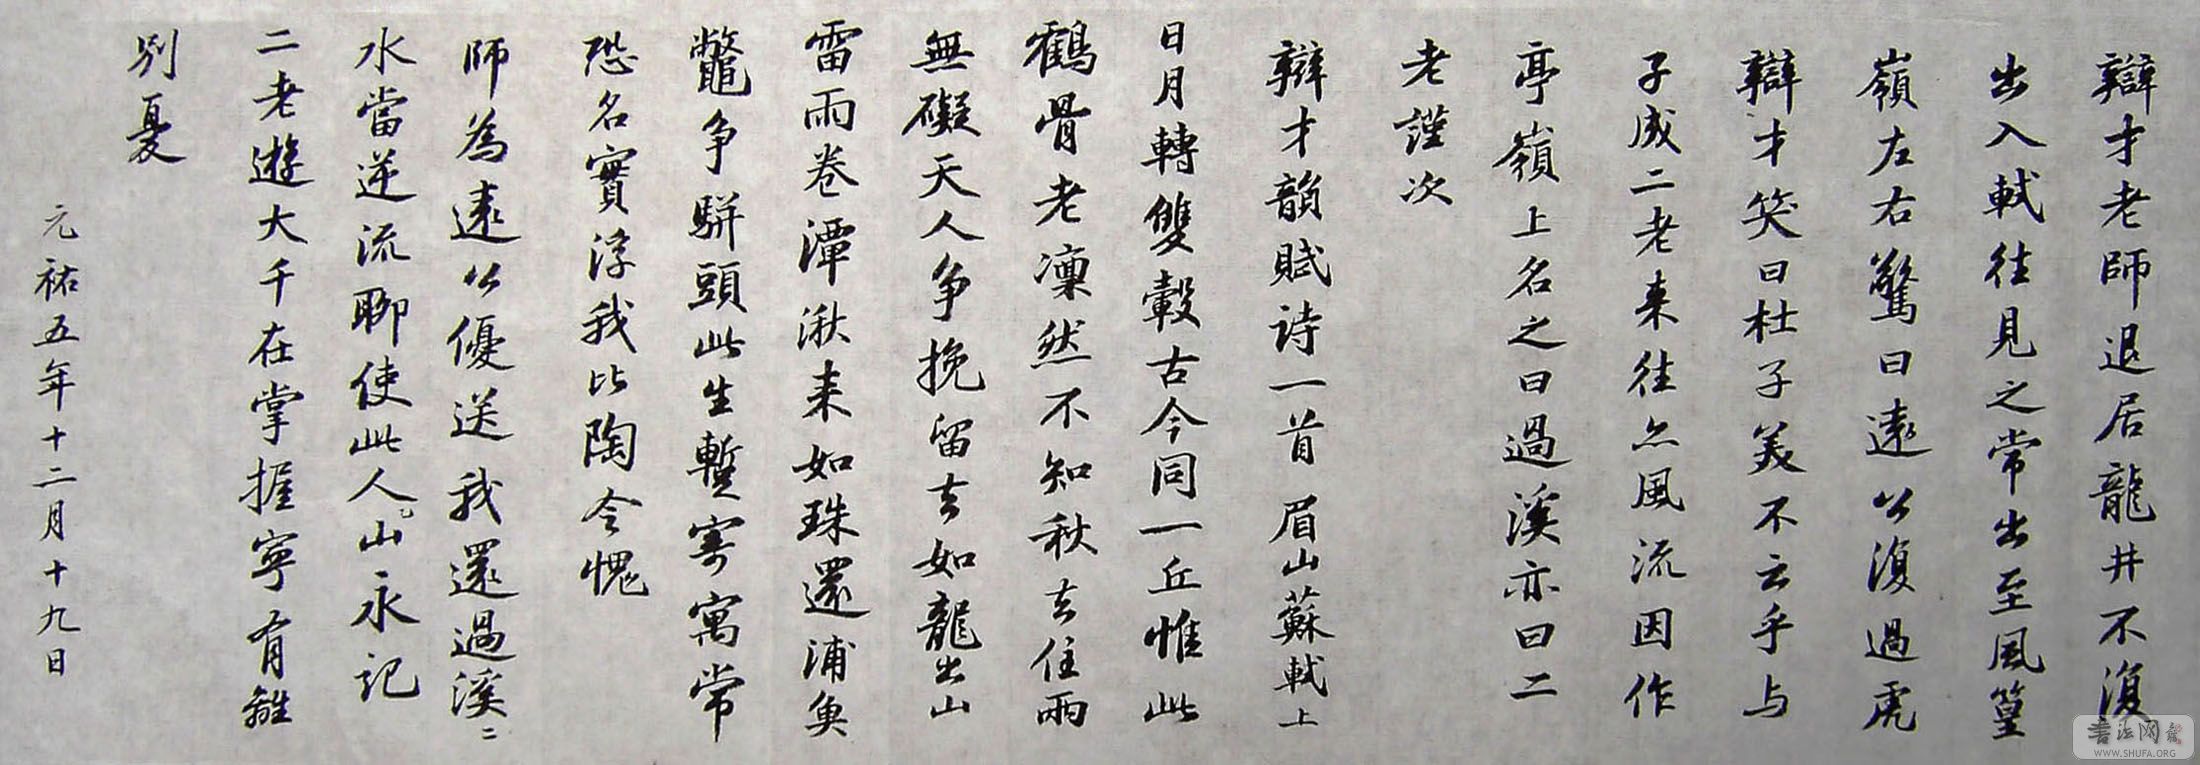 辯才老師退居龍井不復
出入軾往見之常出至風篁
嶺左右驚曰遠公復過虎
辯才笑曰杜子美不云乎与
子成二老来往亦風流因作
亭嶺上名之曰過溪亦曰二
老謹次
辯才韻賦詩一首 眉山蘇軾上
日月轉雙轂古今同一丘惟此
鶴骨老凜然不知秋去住兩
無礙天人争挽留去如龍出山
雷雨卷潭湫来如珠還浦魚
鱉争駢頭此生暫寄寓常
恐名實浮我比陶令愧
師為遠公優送我還過溪〻
水當逆流聊使此人山永記
二老遊大千在掌握寧有離
別憂
元祐五年十二月十九日
書法网
WWW.SHUFA.ORG